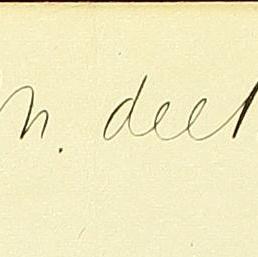 n. deel